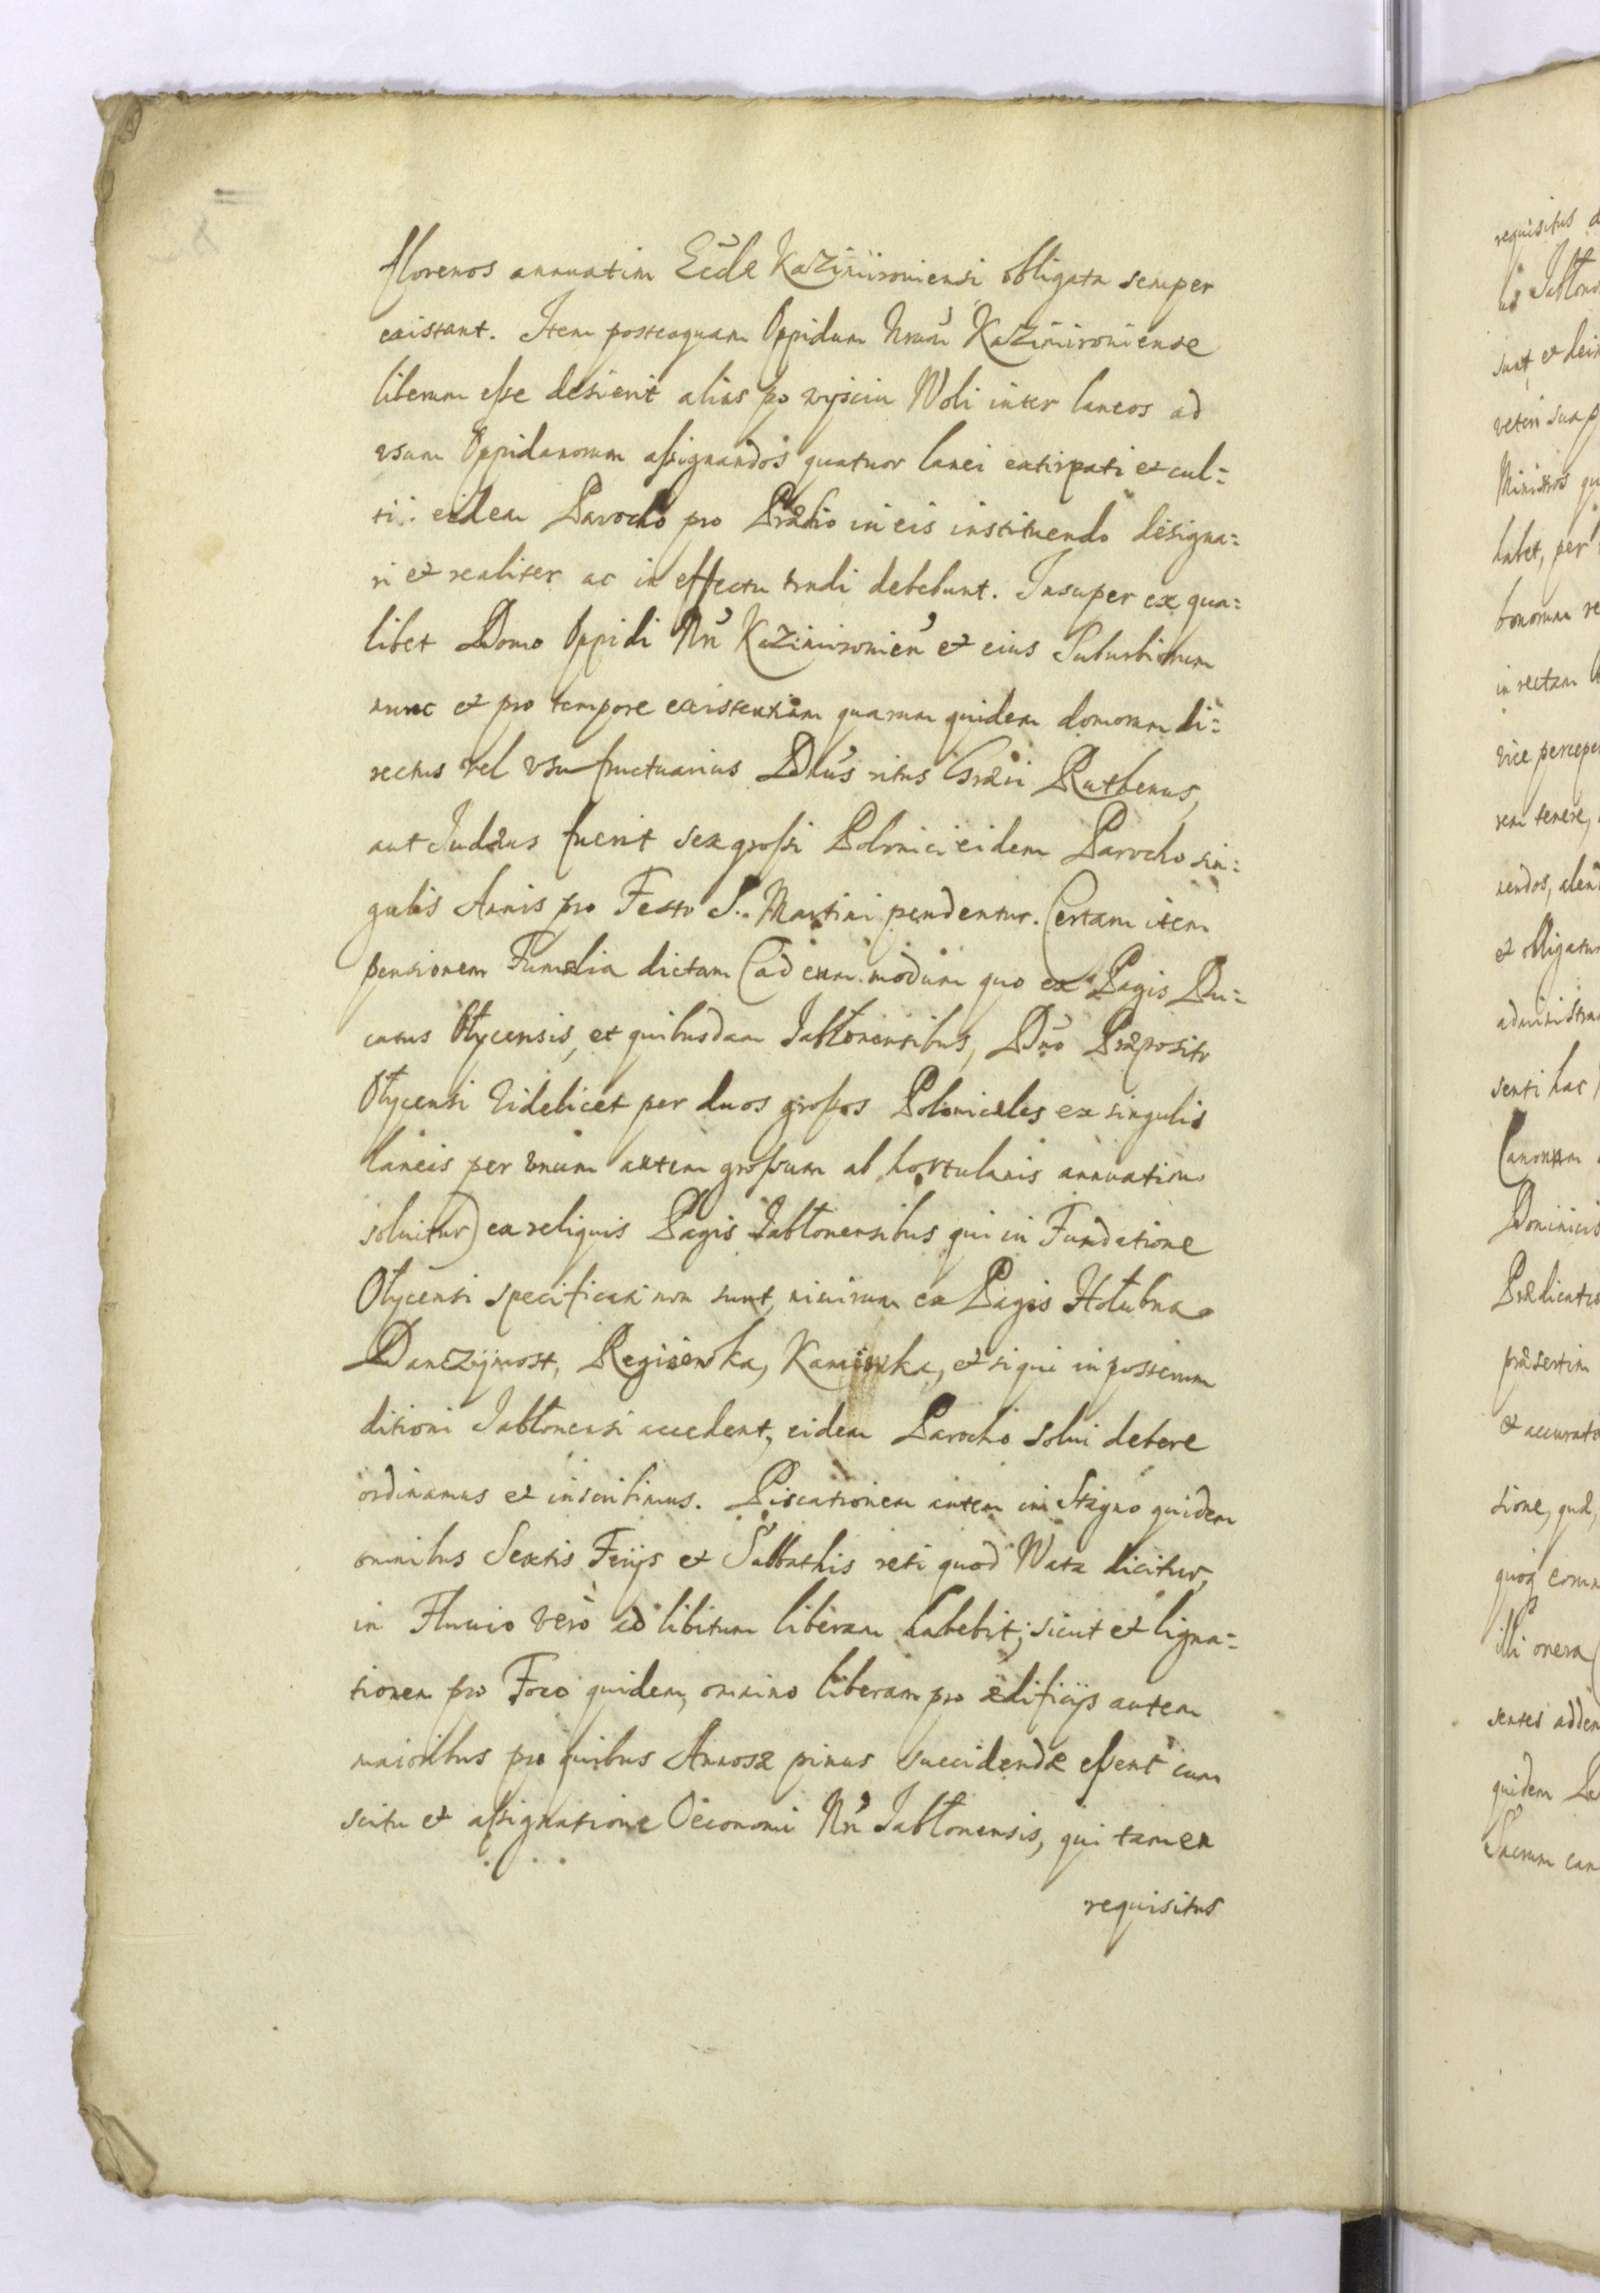 florenos annuatim Eccłæ Kazimiroviensi obligata semper
existant. Item posteaquam Oppidum Nrum Kazimiroviense
liberum esse desierit alias po wyściu Woli inter laneos ad
vsum Oppidanorum assignandos quatuor lanei extirpati et cul=
ti: eidem Parocho pro Prædio in eis instituendo designa=
ri et realiter ac in effectu tradi debebunt. Insuper ex qua=
libet Domo Oppidi Nri Kazimirovien et eius Suburbiorum
nunc et pro tempore existentium quarum quidem domorum di=
rectus vel vsufructuarius Dnus ritus Græci Ruthenus,
aut Judæus fuerit sex grossi Polonici eidem Parocho sin=
gulis Annis pro Festo S. Martini pendentur. Certam item
pensionem Fumalia dictam (ad eum modum quo ex Pagis Du=
catus Ołycensis, et quibusdam Jabłonensibus, Dno Præposito
Ołycensi Videlicet per duos grossos Polonicales ex singulis
laneis per vnum autem grossum ab hortulanis annuatim
soluitur) ex reliquis Pagis Jabłonensibus qui in Fundatione
Ołycensi specificati non sunt, nimirum ex Pagis Hołubna
Danczymost, Regisowka, Kamionka, et si qui in posterum
ditioni Jabłonensi accedent, eidem Parocho solui debere
ordinamus et inscribimus. Piscationem autem in Stagno quidem
omnibus Sextis Feriis et Sabbathis reti quod Wata dicitur,
in Fluuio vero ad libitum liberam habebit; sicut et ligna=
tionem pro Foco quidem, omnino liberam pro ædificiis autem
maioribus pro quibus Annosæ pinus succidendæ essent cum
scitu et assignatione Oeconomi Nri Jabłonensis, qui tamen
requisitus
requisitus
sunt et dein
veteri sua p
Ministros qu
habet, per
bonorum re
in rectam
vice percep
rem tenere,
et obligatur
administra
senti hac
Canonum
Dominicis
Prædicatio
præsertim
et accurate
sione, quæ,
illi onera
quidem
Sacrum can